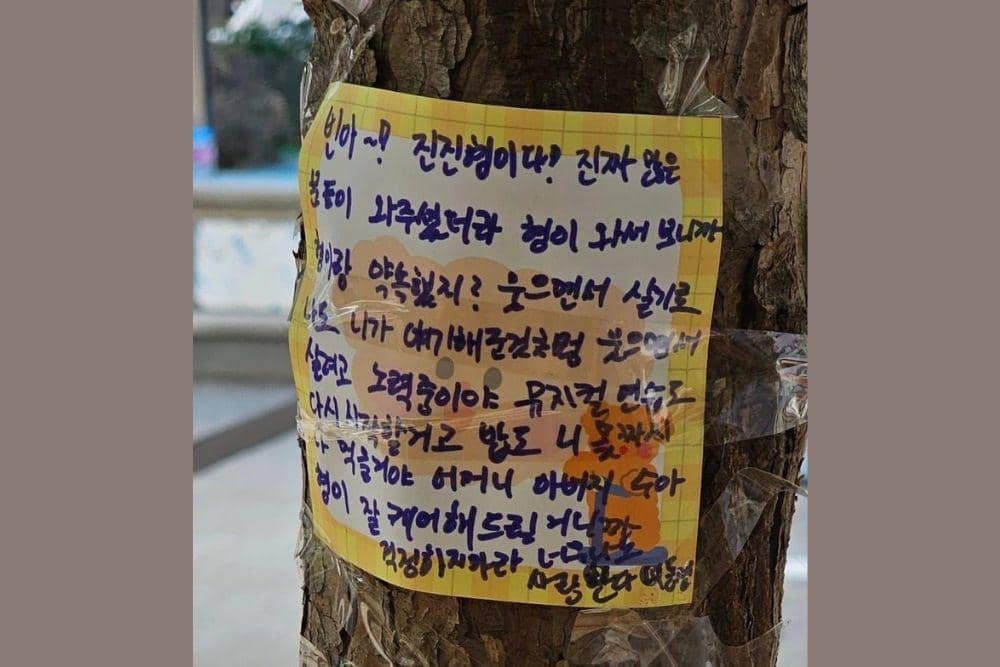 빈아~! 진진형이다! 진짜 많은
분들이 와주셨더라 형이 와서 보니까
형이랑 약속했지? 웃으면서 살기로
나도 니가 얘기해준것처럼 웃으면서
살려고 노력중이야 뮤지컬 연습도
다시 시작할거고 밥도 니 몫까지
다 먹을거야 어머니 아버지 수아
형이 잘 케어해드릴거니까
걱정하지마라
사랑한다 내동생